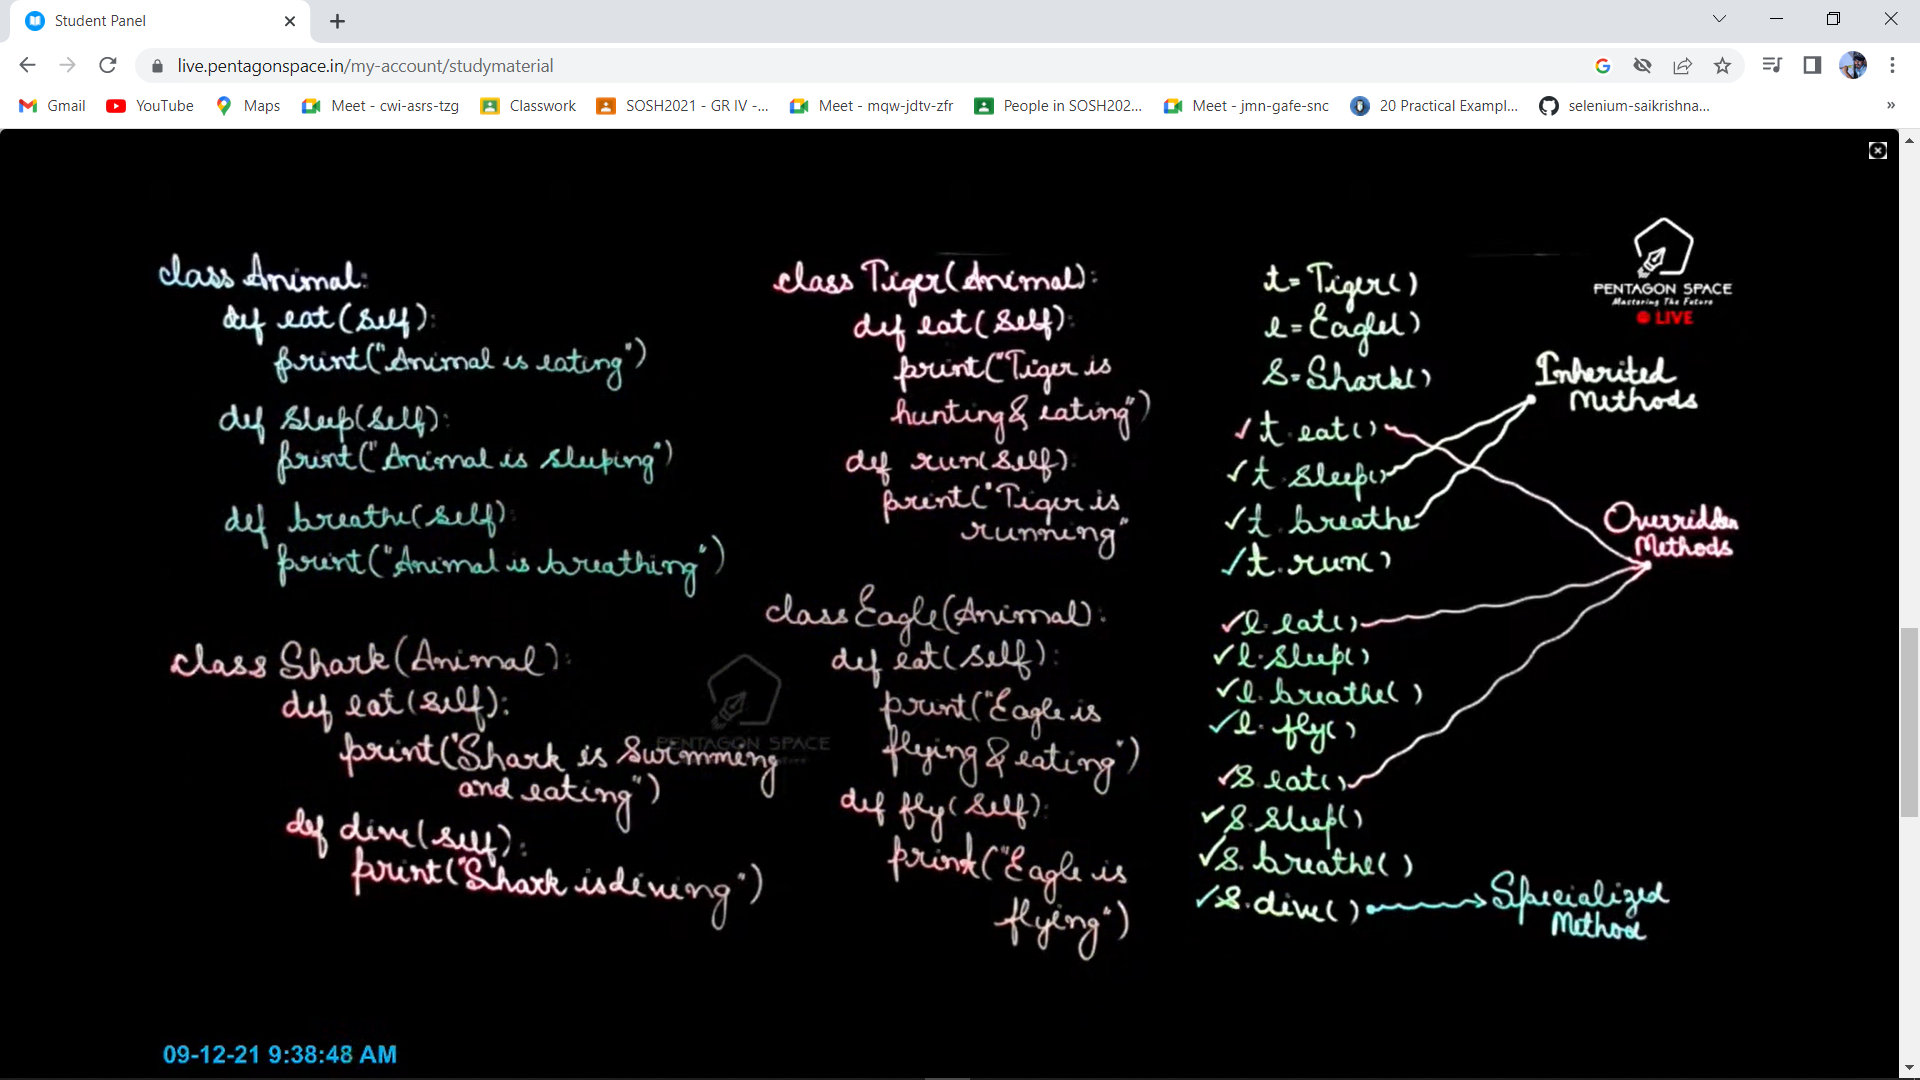 Student Panel
live.pentagonspace.in/my-account/studymaterial
Gmail
YouTube
Maps
Meet - cwi-asrs-tzg
Classwork
SOSH2021 - GR IV -...
Meet - mqw-jdtv-zfr
People in SOSH202...
Meet - jmn-gafe-snc
20 Practical Exampl...
selenium-saikrishna...
»
class Animal:
def eat(self):
print("Animal is eating")
def sleep(self):
print("Animal is sleeping")
def breathe(self):
print("Animal is breathing")
class Shark(Animal):
def eat(self):
print("Shark is Swimming
and eating")
def dive(self):
print("Shark is diving")
class Tiger(Animal):
def eat(self):
print("Tiger is
hunting & eating")
def run(self):
print("Tiger is
running"
class Eagle(Animal):
def eat(self):
print("Eagle is
flying & eating")
def fly(self):
print("Eagle is
flying")
t=Tiger()
e=Eagle()
S=Shark()
✓ t.eat()
✓ t.sleep()
✓ t.breathe
✓ t.run()
✓ e.eat()
✓ e.sleep()
✓ e.breathe()
✓ e.fly()
✓ S.eat()
✓ S.sleep()
✓ S.breathe()
✓ S.dive()
Inherited
Methods
Overridden
Methods
Specialized
Method
PENTAGON SPACE
Mastering The Future
LIVE
PENTAGON SPACE
09-12-21 9:38:48 AM